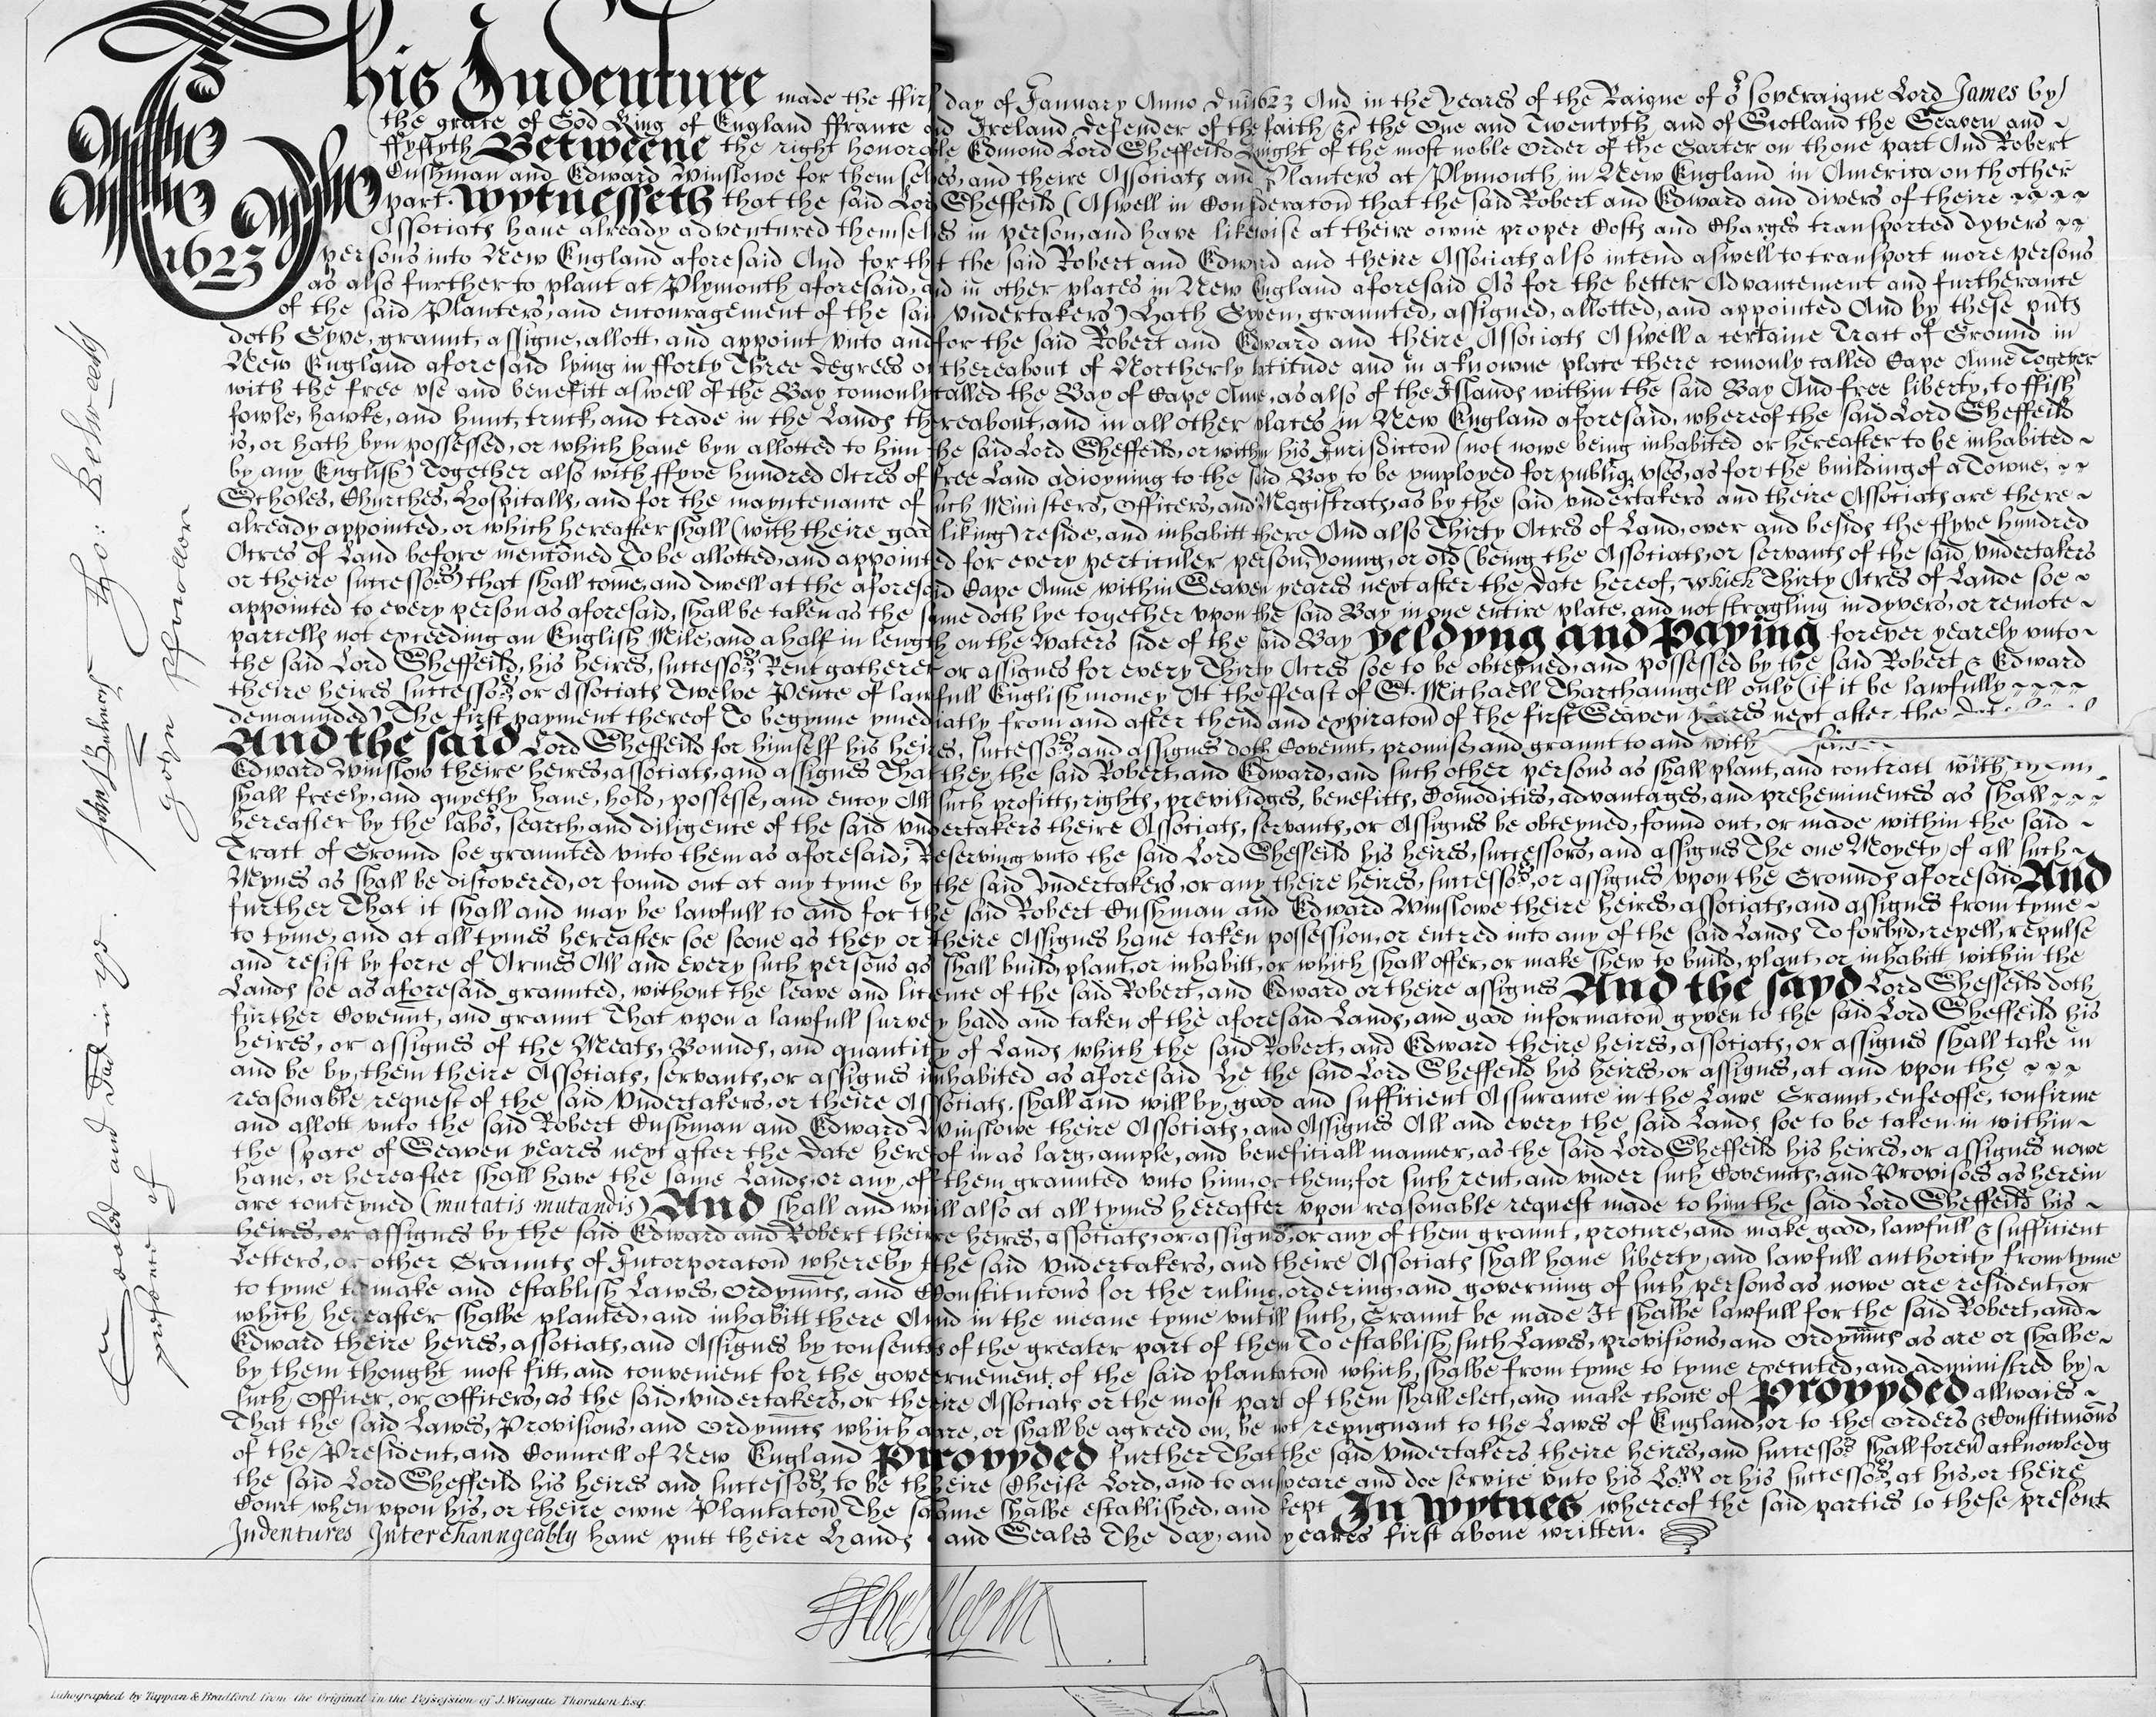 This Indenture made the ffirst day of January Anno Dni 1623 And in the yeares of the Raigne of or Soveraigne Lord James by
the grace of God King of England ffrance and Ireland defender of the faith &c the One and Twentyth and of Scotland the Seaven and
ffyftyth Betweene the right honorable Edmond Lord Sheffeild Knight of the most noble Order of the Garter on thone part And Robert
Cushman and Edward Winslowe for themselves, and theire Associats and Planters at Plymouth in New England in America on thother
part. Wytnesseth that the said Lord Sheffeild (Aswell in Consideracon that the said Robert and Edward and divers of theire
Associats have already adventured themselves in person, and have likewise at theire owne proper Costs and Charges transported dyvers
1623
persons into New England aforesaid And for that the said Robert and Edward and theire Associats also intend aswell to transport more persons
as also further to plant at Plymouth aforesaid, and in other places in New England aforesaid As for the better Advancement and furtherance
of the said Planters, and encouragement of the said Undertakers) Hath Gyven, graunted, assigned, allotted, and appointed And by these pnts
doth Gyve, graunt, assigne, allott, and appoint unto and for the said Robert and Edward and theire Associats Aswell a certaine Tract of Ground in
New England aforesaid lying in fforty Three degrees or thereabout of Northerly latitude and in a knowne place there comonly called Cape Anne Together
with the free use and benefitt aswell of the Bay comonly called the Bay of Cape Anne, as also of the Islands within the said Bay And free liberty, to ffish,
fowle, hawke, and hunt, truck, and trade in the Lands thereabout, and in all other places in New England aforesaid, whereof the said Lord Sheffeild
is, or hath byn possessed, or which have byn allotted to him the said Lord Sheffeild, or within his Jurisdiccon (not nowe being inhabited or hereafter to be inhabited
by any English) Together also with ffyve hundred Acres of free Land adioyning to the said Bay to be ymployed for publiq uses, as for the building of a Towne,
Scholes, Churches, Hospitalls, and for the mayntenance of such Ministers, Officers, and Magistrats, as by the said undertakers and theire Associats are there
already appointed, or which hereafter shall (with theire good liking) reside, and inhabitt there And also Thirty Acres of Land, over and beside the ffyve hundred
Acres of Land before menconed To be allotted, and appointed for every perticuler person, young, or old (being the Associats, or servants of the said undertakers
or theire successors) that shall come, and dwell at the aforesaid Cape Anne within Seaven yeares next after the date hereof, which Thirty Acres of Lande soe
appointed to every person as aforesaid, shall be taken as the same doth lye together upon the said Bay in one entire place, and not stragling in dyvers, or remote
parcells not exceeding an English Mile, and a half in length on the Waters side of the said Bay Yeldyng and Paying forever yearely unto
the said Lord Sheffeild, his heires, successors, Rentgatherer or assignes for every Thirty Acres soe to be obteyned, and possessed by the said Robert & Edward
theire heires, successors, or Associats Twelve Pence of lawfull English money At the ffeast of St. Michaell Tharchaungell only (if it be lawfully
demaunded) The first payment thereof To begynne ymediatly from and after thend and expiracon of the first Seaven yeares next after the
And the said Lord Sheffeild for himself his heires, successors, and assignes doth Covennt, promise, and graunt to and with
Edward Winslow theire heires, associats, and assignes That they the said Robert, and Edward, and such other persons as shall plant, and contract with
shall freely, and quyetly have, hold, possesse, and enioy All such profitts, rights, previlidges, benefitts, Comodities, advantages, and preheminences as shall
hereafter by the labor, search, and diligence of the said Undertakers theire Associats, servants, or Assignes be obteyned, found out, or made within the said
Tract of Ground soe graunted unto them as aforesaid; Reserving unto the said Lord Sheffeild his heires, successors, and assignes The one Moyety of all such
Mynes as shall be discovered, or found out at any tyme by the said Undertakers, or any theire heires, successors, or assignes upon the Grounds aforesaid And
further That it shall and may be lawfull to and for the said Robert Cushman and Edward Winslowe theire heires, associats, and assignes from tyme
to tyme, and at all tymes hereafter soe soone as they or theire Assignes have taken possession, or entred into any of the said Lands To forbyd, repell, repulse
and resist by force of Armes All and every such persons as shall build, plant, or inhabitt, or which shall offer, or make shew to build, plant, or inhabitt within the
Lands soe as aforesaid graunted, without the leave and licence of the said Robert, and Edward or theire assignes And the sayd Lord Sheffeild doth
further Covennt, and graunt That upon a lawfull survey hadd and taken of the aforesaid Lands, and good informacon gyven to the said Lord Sheffeild his
heires, or assignes of the Meats, Bounds, and quantity of Lands which the said Robert, and Edward theire heires, associats, or assignes shall take in
and be by, them theire Associats, servants, or assignes inhabited as aforesaid He the said Lord Sheffeild his heires, or assignes, at and upon the
reasonable request of the said Undertakers, or theire Associats, shall and will by good and sufficient Assurance in the Lawe Graunt, enfeoffe, confirme
and allott unto the said Robert Cushman and Edward Winslowe theire Associats, and Assignes All and every the said Lands soe to be taken in within
the space of Seaven yeares next after the date hereof in as larg, ample, and beneficiall manner, as the said Lord Sheffeild his heires, or assignes nowe
have, or hereafter shall have the same Lands, or any of them graunted unto him, or them; for such rent, and under such Covennts, and Provisoes as herein
are conteyned (mutatis mutandis) And shall and will also at all tymes hereafter upon reasonable request made to him the said Lord Sheffeild his
heires, or assignes by the said Edward and Robert theire heires, associats, or assignes, or any of them graunt, procure, and make good, lawfull & sufficient
Letters, or other Graunts of Incorporacon whereby the said Undertakers, and theire Associats shall have liberty, and lawfull authority from tyme
to tyme to make and establish Lawes, Ordynncs, and Constitucons for the ruling, ordering, and governing of such persons as nowe are resident, or
which hereafter shalbe planted, and inhabitt there And in the meane tyme untill such Graunt be made It shalbe lawfull for the said Robert, and
Edward theire heires, associats, and Assignes by consent of the greater part of them To establish such Lawes, provisions, and Ordynncs as are or shalbe
by them thought most fitt, and convenient for the governement of the said plantacon which shalbe from tyme to tyme executed, and administred by
such Officer, or Officers, as the said undertakers, or theire Associats or the most part of them shall elect, and make choice of Provyded allwaies
That the said Lawes, Provisions, and Ordynncs which are, or shall be agreed on, be not repugnant to the Lawes of England, or to the Orders & Constitucons
of the President, and Councell of New England Provyded further That the said Undertakers theire heires, and successors shall forevr acknowledg
the said Lord Sheffeild his heires and successors, to be theire Cheife Lord, and to answeare and doe service unto his Lopp or his successors, at his, or theire
Court when upon his, or theire owne Plantacon The same shalbe established, and kept In wytnes whereof the said parties to these present
Indentures Interchaungeably have putt theire Hands and Seales The day, and yeares first above written.
Sealed and
presence of
John
Tho:
John
Lithographed by Tappan & Bradford from the Original in the Possession of J. Wingate Thornton Esq.